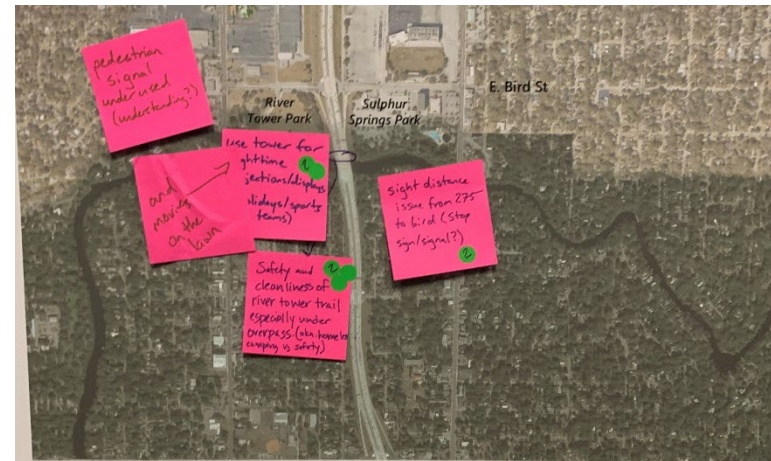 pedestrian
signal
underused
(understanding?)
River
Tower Park
Sulphur
Springs Park
E. Bird St
use tower for
ghttime
jections/displays
lidays/sports
teams)
2
and
movies
on the
lawn
sight distance
issue from 275
to bird (stop
sign/signal?)
2
Safety and
cleanliness of
river tower trail
especially under
overpass. (aka. homeless
camping vs safety)
2